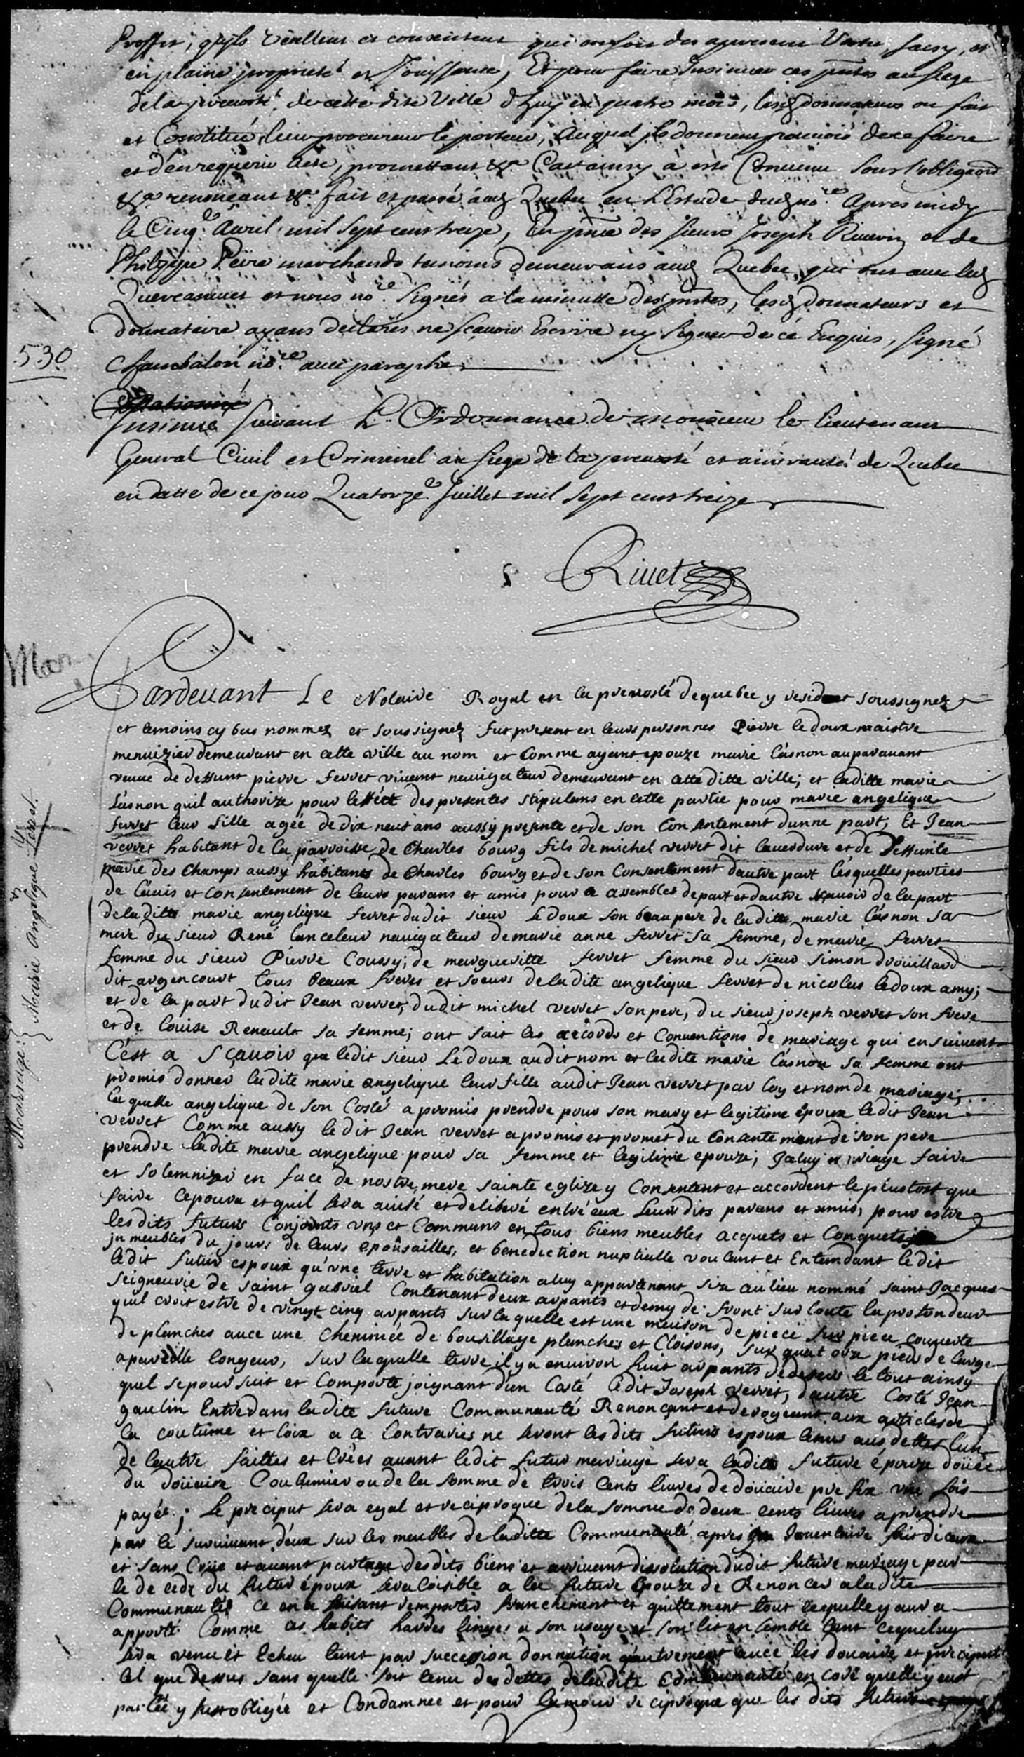 proffit, qu'ils veuillent et consentent qui en soit des apresent vestu, saisy, et
en plaine propriete et Jouissance, Et pour faire Insinuer ces pntes au siege
de la prevosté de cette dite Ville d'huy en quatre mois, lesds donnateurs on fait
et Constitué leur procureur le porteur, Auquel ils donnent pouvoir de ce faire
et d'en requerir acte, promettant &a Car ainsy a esté Convenu sous l'obligaon
&a renonceant &a fait et passé aud Quebec en l'Estude dud nore Apres midy
le Cinqe Avril mil sept cens treize, En pnce des sieurs Joseph et de
Philippe Peire marchands temoins demeurans aud Quebec qui ont avec led
et nous nore signés a la minutte des pntes, lesds donnateurs et
donnataire ayans declarés ne sçavoir Escrire ny signer de ce Enquis, signé
530
Chambalon nore avec paraphe
Insinué suivant L'Ordonnance de monsieur le lieutenant
General Civil et Criminel au siege de la prevosté et amirauté de Quebec
en datte de ce jour Quatorze Juillet mil sept cens treize
Rivet
Mar
Pardevant Le Notaire Royal en la prevosté de quebec y resident soussignez
et temoins cy bas nommez et soussignez fut present en leurs personnes Pierre le doux maistre
menuizier demeurant en cette ville au nom et comme ayant epouze marie Casnon auparavant
veuve de deffunt pierre ferret vivant navigateur demeurant en cette ditte ville; et laditte marie
Casnon quil authorize pour l'effect des presentes stipulans en cette partie pour marie angelique
ferret leur fille agée de dix neuf ans aussy presente et de son consentement d'une part, Et Jean
verret habitant de la parroisse de Charles bourg fils de michel verret dit laverdure et de deffunte
marie des champs aussy habitants de Charles bourg et de son Consentement d'autre part lesquelles parties
de l'avis et consentement de leurs parans et amis pour ce assembles de part et d'autre sçavoir de la part
de la ditte marie angelique ferret du dit sieur Le doux son beau pere de la ditte marie Casnon sa
mere du sieur René Lanceleur navigateur de marie anne ferret sa femme, de marie ferret
femme du sieur Pierre Coussy, de margueritte ferret femme du sieur simon drouillard
dit argencourt tous beaux freres et soeurs de ladite angelique ferret de nicolas ledoux amy;
et de la part du dit Jean verret, dudit michel verret son pere, du sieur joseph verret son frere
et de Louise Renault sa femme; ont fait les accords et Conventions de mariage qui ensuivent
C'est a sçavoir que ledit sieur Le doux audit nom et ladite marie Casnon sa femme ont
promis donner ladite marie angelique leur fille audit Jean verret par loy et nom de mariage;
laquelle angelique de son costé a promis prendre pour son mary et legitime epoux ledit Jean
verret Comme aussy le dit Jean verret a promis et promet du Consentement de son pere
prendre ladite marie angelique pour sa femme et legitime epouze; Jceluy mariage faire
et solemnizer en face de nostre mere sainte eglize y Consentent et accordent le plustost que
faire ce poura et quil sera avisé et deliberé entre eux leurs dits parans et amis; pour estre
les dits futurs Conjoints uns et Communs en tous biens meubles acquets et Conquets
jmmeubles du jours de leurs epousailles, et benediction nuptialle voulant et Entendant le dit
ledit futur espoux qu'une terre et habitation a luy appartenant size au lieu nommé saint Jacques
seigneurie de saint gabriel Contenant deux arpants et demy de front sur toute la profondeur
quil croit estre de vingt cinq arpants sur laquelle est une maison de piece sur piece couverte
de planches avec une cheminée de bousillage planches et Cloisons, sur quatorze pieds de large
a pareille longeur, sur laquelle terre il y a environ huit arpants de dezert le tout ainsy
quel se poursuit et comporte joignant d'un costé ledit Joseph verret, d'autre Costé Jean
gaulin Entre dans ladite future Communauté Renonçant et derogeant aux articles de
la coutume et loix a ce contraires ne seront les dits futurs espoux tenus aux dettes l'un
de l'autre faittes et Crées avant ledit futur mariage sera ladite future epouze douée
du doüaire Coutumier ou de la somme de trois Cents livres de doüaire prefix une fois
payée; Le preciput sera egal et reciproque de la somme de deux cents livres a prendre
par le survivant deux sur les meubles de ladite Communauté apres Jnventaire fait d'iceux
et sans Crüe et avant partage desdits biens et arrivant dissolution dudit futur mariage par
le deceds du futur epoux sera loisible a la future epouze de Renoncer a ladite
Communauté ce en faisant remporter franchement et quittement tout ce quelle y aura
apporté Comme ses habits hardes linges a son usage et son lit ensemble tout ce quelluy
sera venu et Echeu tant par succession donnation qu'autrement avec les doüaire et preciput
tel que dessus sans quelle soit tenu des dettes de la dite Communauté en core quelle y eut
parlée y fust obligée et Condamnée et pour l'amour reciproque que les dits futurs
Mariage:
Marie Angelique Ferret